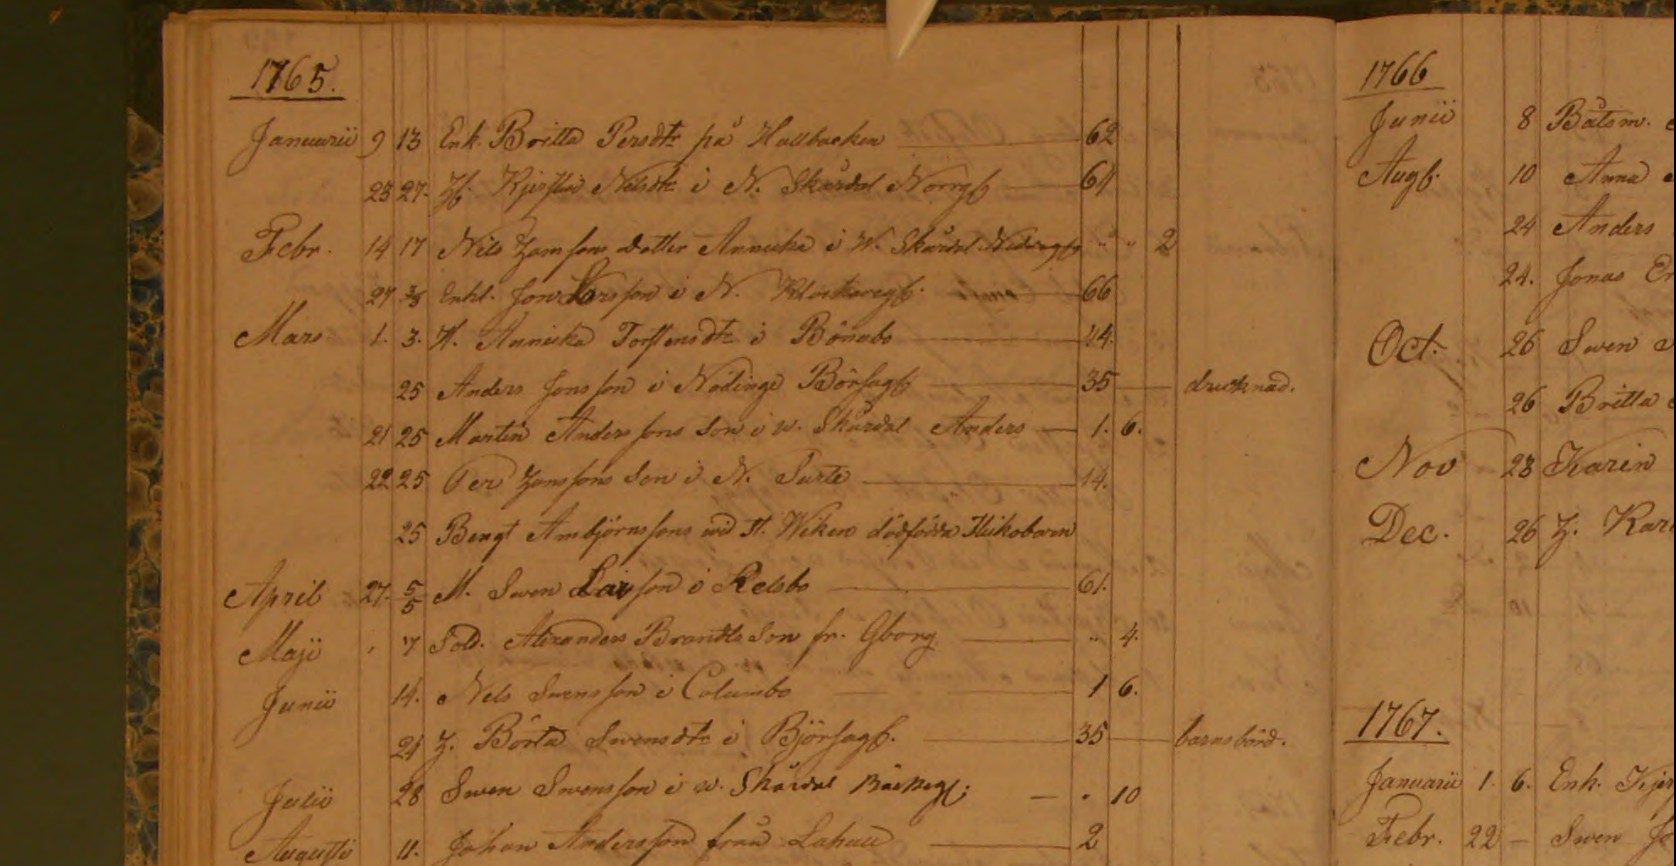 1765.
Januarii 9 13 Enk. Britta Persdtr på Hallbacken 62
23 27. H. Kjerstin Nilsdtr i N. Skårdal Norrg. 64
Febr. 14 17 Nils Jonssons dotter Annicka i W. Skårdal " " 2
27 Enkl. Jon Larsson i N. Klockareg. 66
Mars 1. 3. H. Annicka Torstensdtr i Bönabo 44.
25 Anders Jonsson i Nödinge Börsag. 35 drucknad.
21 25 Martin Anderssons son i w. Skårdal Anders 1. 6.
22 25 Per Jonssons son i N. Surte 14.
25 Bengt Ambjörnssons wid St. Wiken dödfödda flickobarn
April 27. 5/5 M. Swen Larsson i Kelsbo 61.
Maji 7 Sold. Alexanders Brandts son fr. Gborg " 4.
Junii 14. Nils Swensson i Columbo 1 6.
24 H. Börta Swensdtr i Björsag. 35 barnsbörd.
Julii 28 Swen Swensson i w. Skårdal Bäckeg. 10
Augusti 11. Johan Andersson från Lahall 2
1766
Junii 8 Båtsm.
Aug. 10 Anna
24 Anders
24. Jonas
Oct. 26 Swen
26 Britta
Nov 28 Karin
Dec. 26 H.
1767.
Januarii 1. 6. Enk.
Febr. 22 – Swen